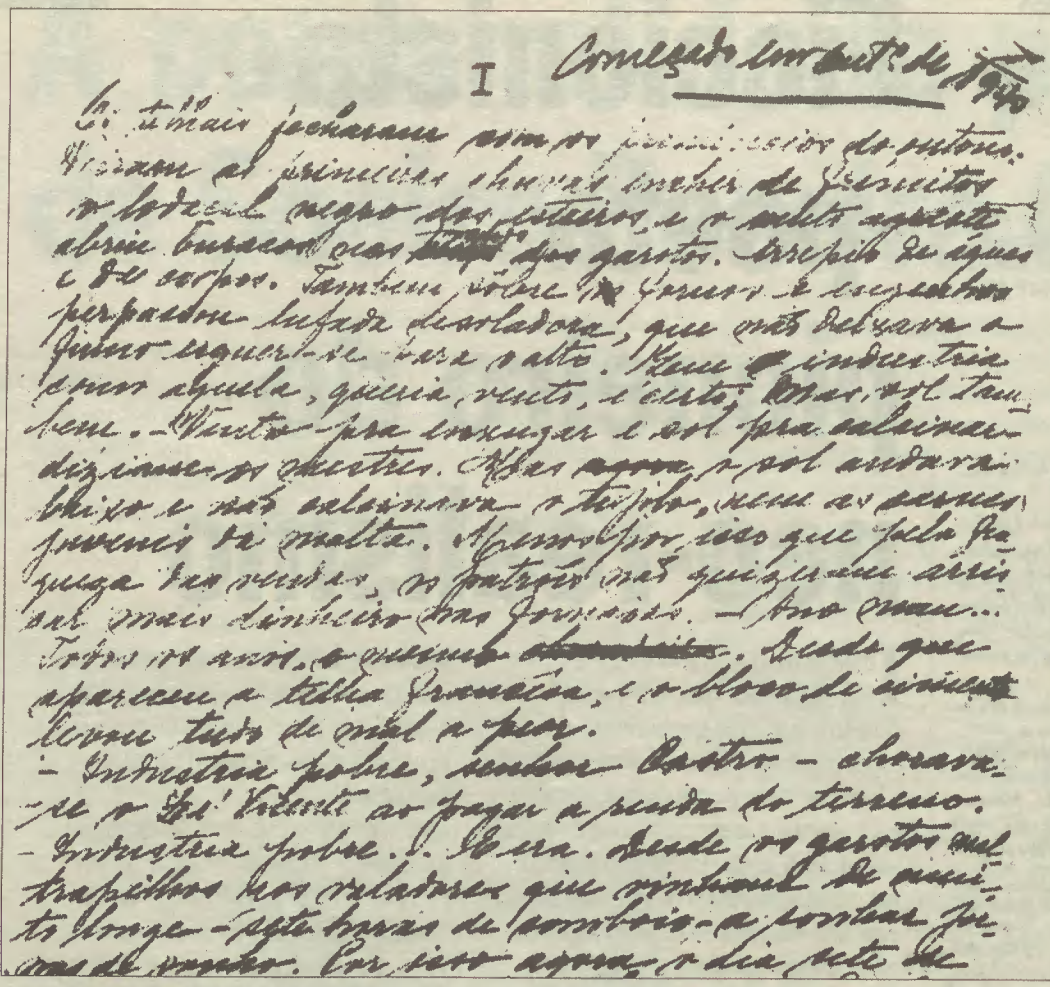 I Começado em Outº. de 1940
Os telhais fecharam com os prenúncios do outono.
Viram as primeiras chuvas encher de frémitos
o lodaçal negro dos esteiros, e o vento agreste
abriu buracos nos dos garotos. Arrepio de águas
e de corpos. Tambem sôbre os fornos e engenhos
perpassou lufada desoladora, que não deixava o
fumo erguer-se para o alto. Que industria
como aquela, queria vento, é certo; mas, sol tam-
bem. - Vento pra enxugar e sol pra calcinar -
diziam os mestres. Mas agora, o sol andava
baixo e não calcinava o tijolo, nem as carnes
juvenis da malta. Menos por isso que pela fra-
queza das vendas, os patrões não quizeram arris
car mais dinheiro nas fornadas. - Ano mau...
Todos os anos, o mesmo. Desde que
apareceu a telha francêsa, e o bloco de cimento
levou tudo de mal a pior.
- Industria pobre, senhor Castro - chorava-
-se o Zé Vicente ao pagar a renda do terreno.
- Industria pobre... E era. Desde os garotos mal
trapilhos aos valadores que vinham de mui-
to longe - sete horas de comboio - a sonhar jor-
nas de sonho. Por isso agora o dia sete de